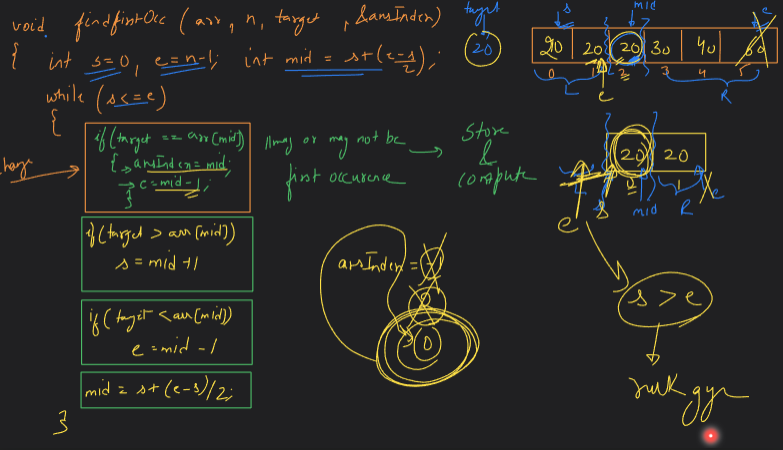 void findfirstOcc (arr, n, target, &ansIndex)
{ int s=0, e=n-1; int mid = s+(e-s)/2;
while (s<=e)
{
if (target == arr[mid])
{ → ansIndex = mid;
→ e = mid-1;
}
//may or may not be
first occurence
Store
&
compute
if (target > arr[mid])
s = mid+1
if (target < arr[mid])
e = mid-1
mid = s+(e-s)/2;
}
target
20
s mid e
20 20 20 30 40 60
0 1 2 3 4 5
L R
e
20 20
0 1
e s mid R e
ansIndex = -1
2
0
s > e
ruk gya